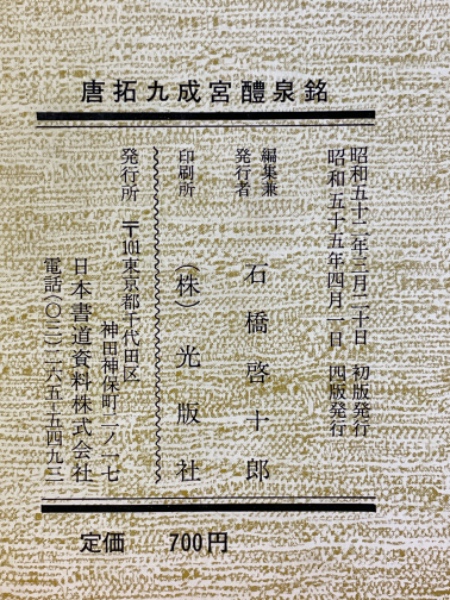 唐拓九成宮醴泉銘
昭和五十二年三月二十日　初版発行
昭和五十五年四月一日　四版発行
編集兼
発行者
石橋啓十郎
印刷所
(株)光版社
発行所
〒101東京都千代田区
神田神保町二ノ一七
日本書道資料株式会社
電話(〇三)二六五-五四九二
定価　700円